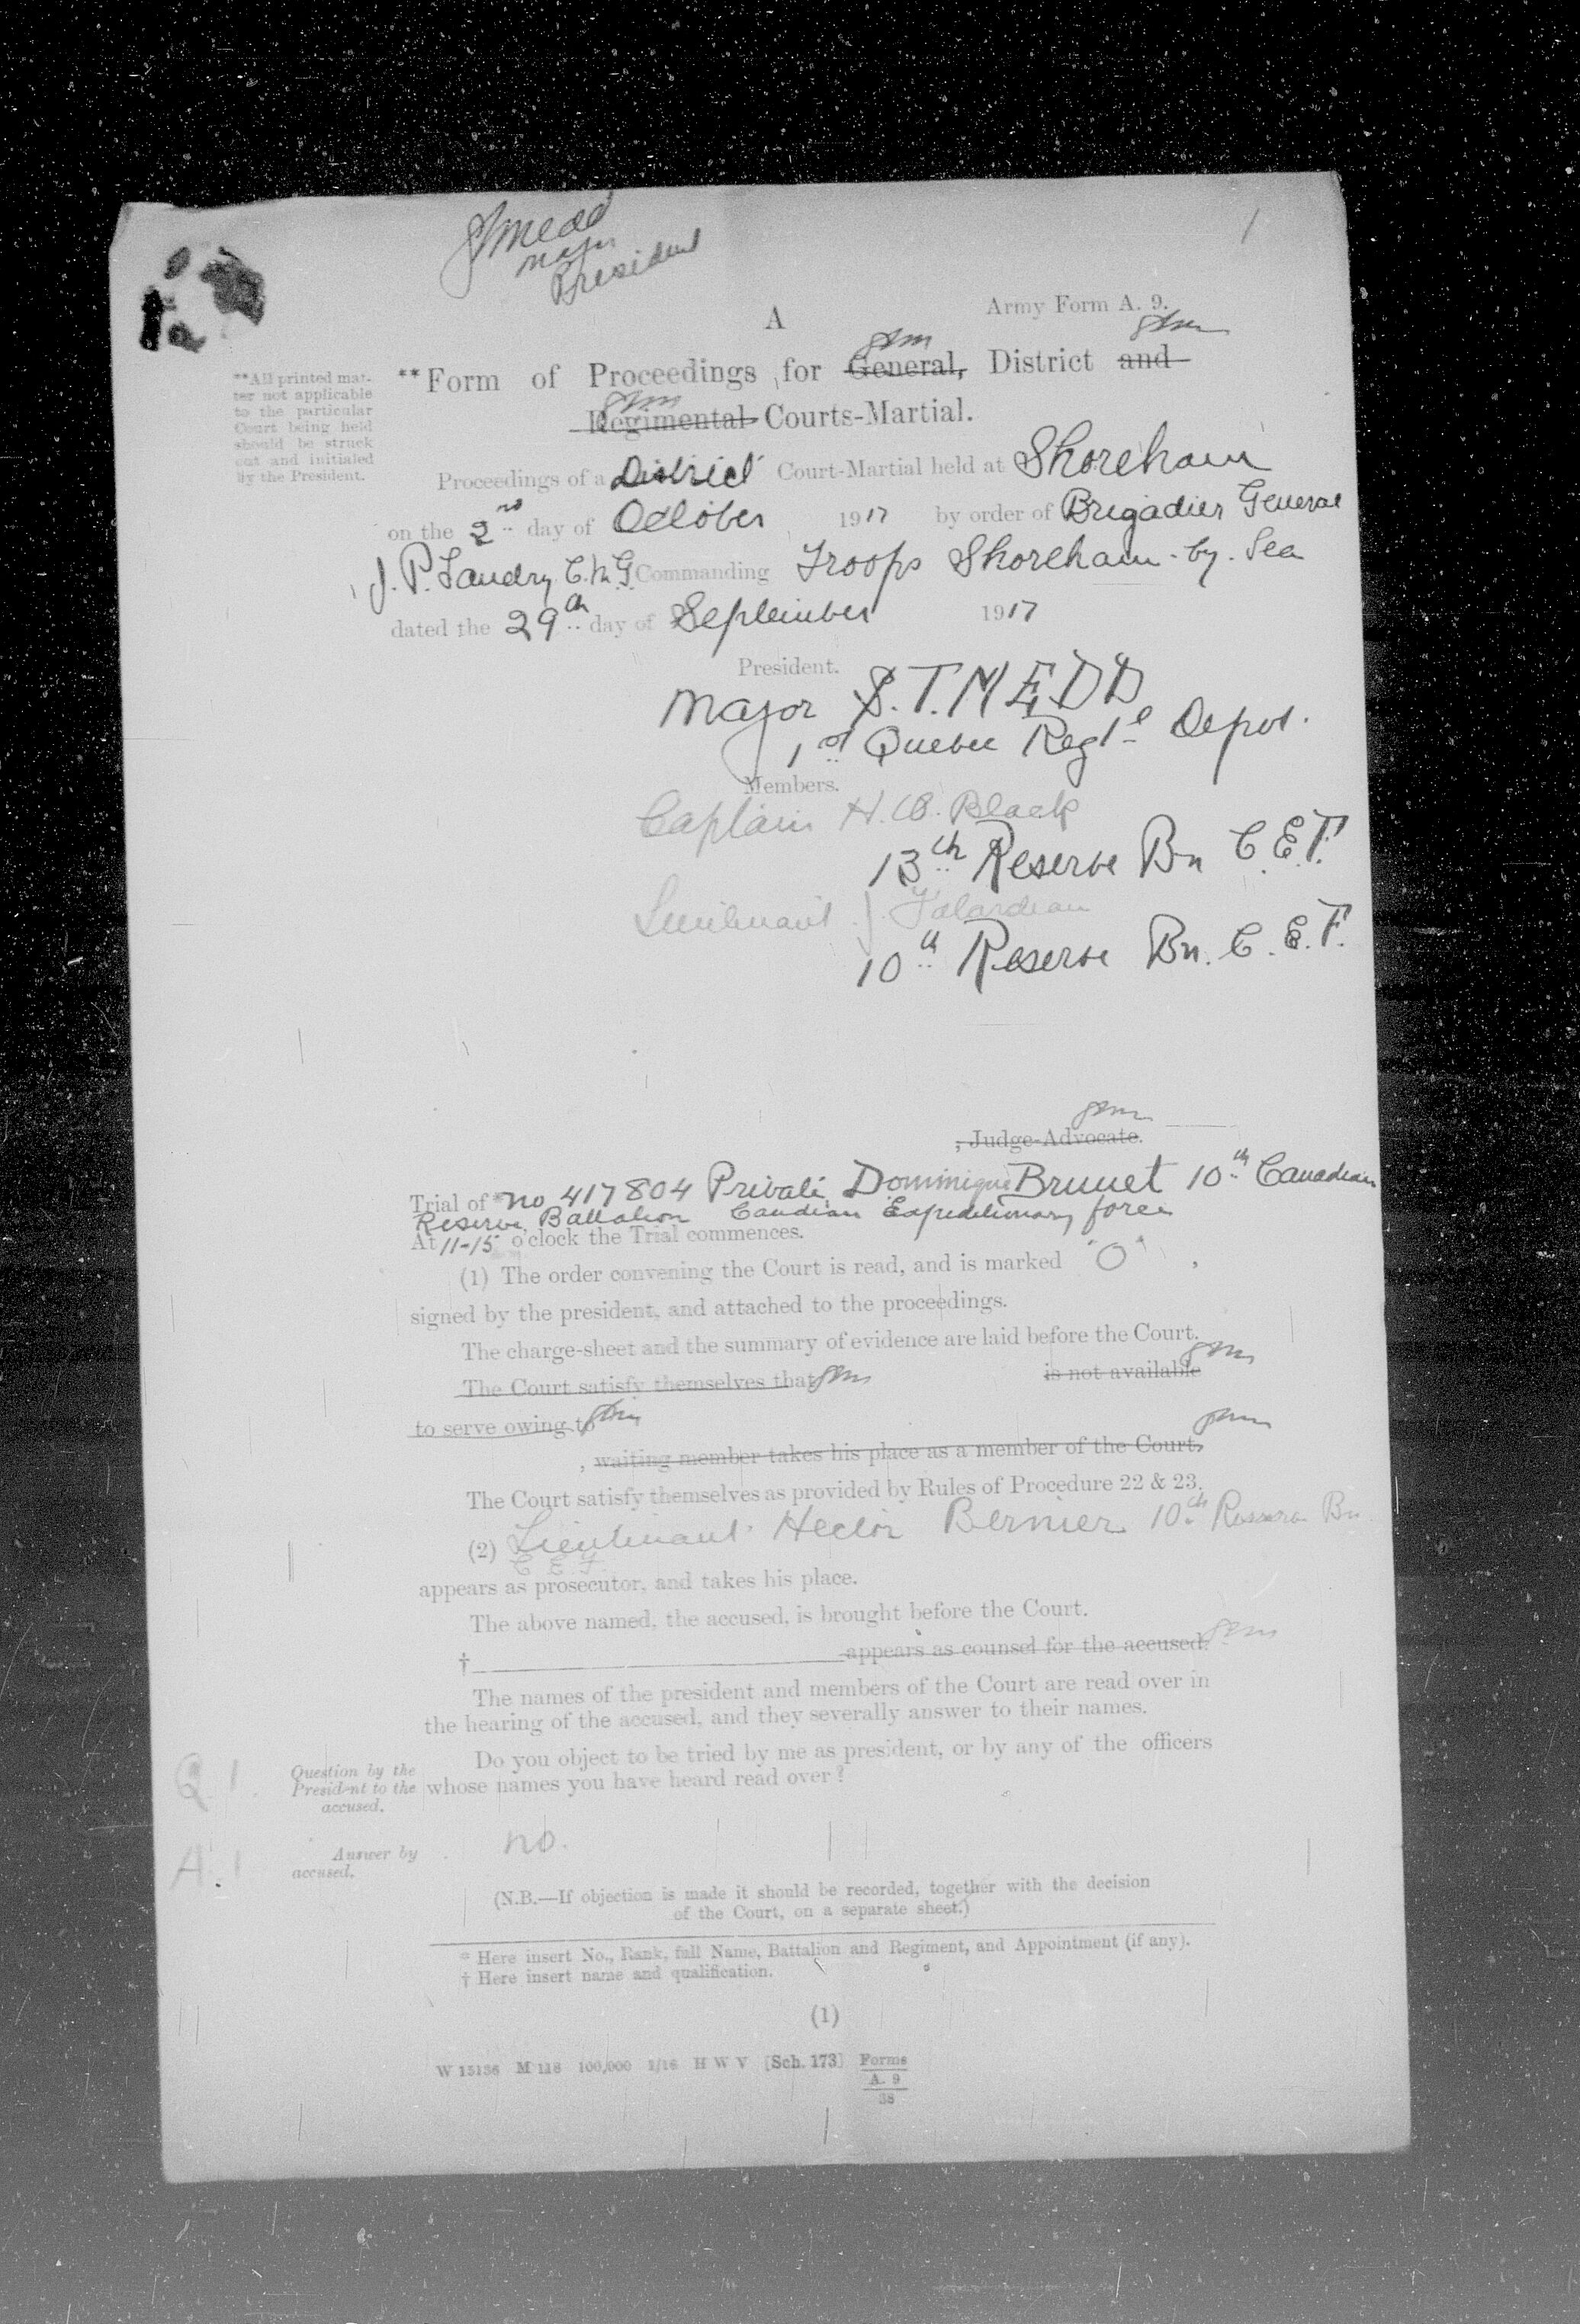 Major
President
1
A
Army Form A. 9.
**Form of Proceedings for General, District and
Regimental Courts-Martial.
**All printed mat-
ter not applicable
to the particular
Court being held
should be struck
out and initialed
by the President.
Proceedings of a District Court-Martial held at Shoreham
on the 2nd day of October 1917 by order of Brigadier General
J. P. Landry C.M.G. Commanding Troops Shoreham-by-Sea
dated the 29th day of September 1917
President.
Major S. T. MEDD
1st Quebec Regtl Depot.
Members.
Captain H. B. Black
13th Reserve Bn C.E.F.
Lieutenant J. Talardeau
10th Reserve Bn. C.E.F.
, Judge-Advocate.
Trial of * No 417804 Private Dominique Brunet 10th Canadian
Reserve Battalion Caudian Expeditionary force
At 11-15 o'clock the Trial commences.
(1) The order convening the Court is read, and is marked "O" ,
signed by the president, and attached to the proceedings.
The charge-sheet and the summary of evidence are laid before the Court.
The Court satisfy themselves that is not available
to serve owing to
, waiting member takes his place as a member of the Court.
The Court satisfy themselves as provided by Rules of Procedure 22 & 23.
(2) Lieutenant Hector Bernier 10th Reserve Bn
C.E.F.
appears as prosecutor, and takes his place.
The above named, the accused, is brought before the Court.
† appears as counsel for the accused.
The names of the president and members of the Court are read over in
the hearing of the accused, and they severally answer to their names.
Q 1.
Question by the
President to the
accused.
Do you object to be tried by me as president, or by any of the officers
whose names you have heard read over?
A. 1
Answer by
accused.
no.
(N.B.—If objection is made it should be recorded, together with the decision
of the Court, on a separate sheet.)
* Here insert No., Rank, full Name, Battalion and Regiment, and Appointment (if any).
† Here insert name and qualification.
(1)
W 15136 M 118 100,000 1/16 H W V [Sch. 173] Forms
A. 9
38